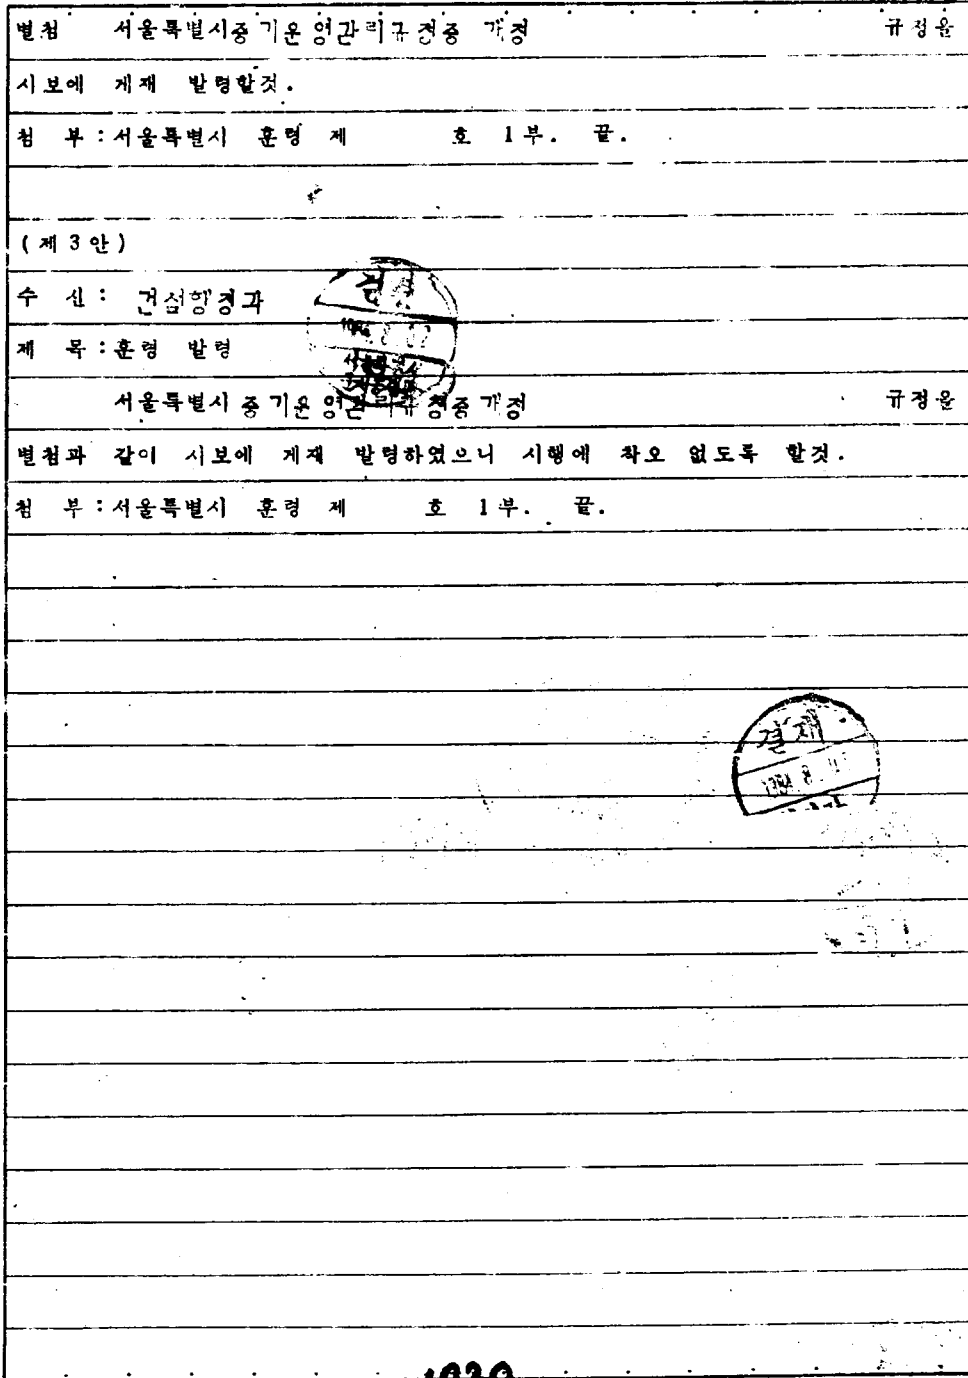 별첨 서울특별시중기운영관리규정중 개정 규정을
시보에 게재 발령할것.
첨 부 : 서울특별시 훈령 제 호 1부. 끝.
(제3안)
수 신 : 건설행정과
제 목 : 훈령 발령
서울특별시 중기운영관리규정중개정 규정을
별첨과 같이 시보에 게재 발령하였으니 시행에 착오 없도록 할것.
첨 부 : 서울특별시 훈령 제 호 1부. 끝.
결재